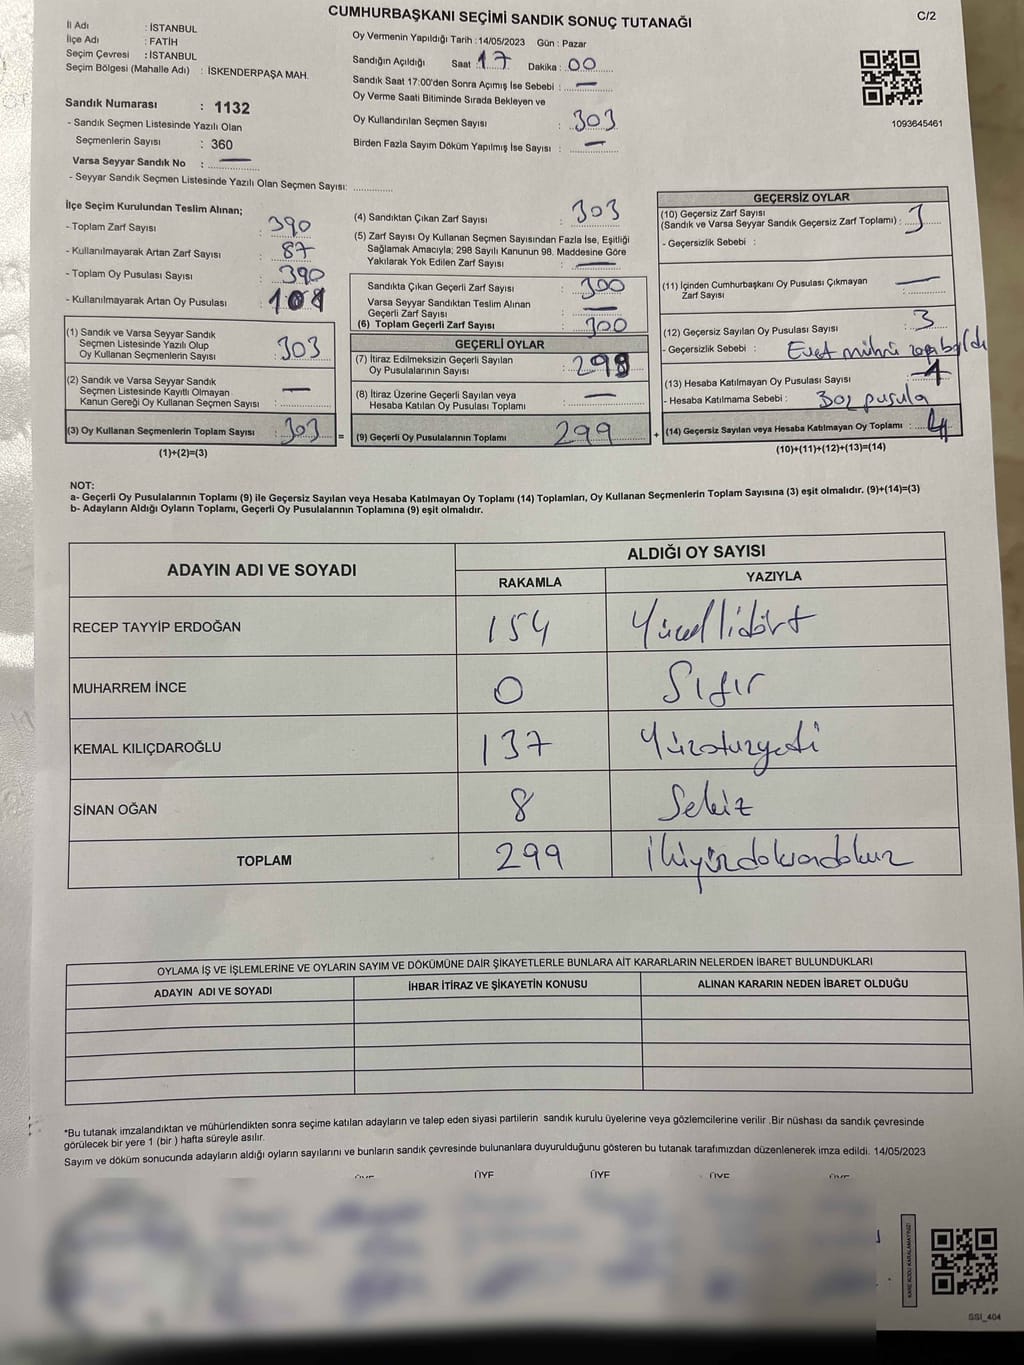 CUMHURBAŞKANI SEÇİMİ SANDIK SONUÇ TUTANAĞI
C/2
İl Adı : İSTANBUL
İlçe Adı : FATİH
Seçim Çevresi : İSTANBUL
Seçim Bölgesi (Mahalle Adı) : İSKENDERPAŞA MAH.
Sandık Numarası : 1132
- Sandık Seçmen Listesinde Yazılı Olan
Seçmenlerin Sayısı : 360
Varsa Seyyar Sandık No : —
- Seyyar Sandık Seçmen Listesinde Yazılı Olan Seçmen Sayısı: ............
Oy Vermenin Yapıldığı Tarih : 14/05/2023 Gün : Pazar
Sandığın Açıldığı Saat 17 Dakika : 00
Sandık Saat 17:00'den Sonra Açımış İse Sebebi : —
Oy Verme Saati Bitiminde Sırada Bekleyen ve
Oy Kullandırılan Seçmen Sayısı : 303
Birden Fazla Sayım Döküm Yapılmış İse Sayısı : —
1093645461
İlçe Seçim Kurulundan Teslim Alınan;
- Toplam Zarf Sayısı : 390
- Kullanılmayarak Artan Zarf Sayısı : 87
- Toplam Oy Pusulası Sayısı : 390
- Kullanılmayarak Artan Oy Pusulası :
(1) Sandık ve Varsa Seyyar Sandık
Seçmen Listesinde Yazılı Olup
Oy Kullanan Seçmenlerin Sayısı : 303
(2) Sandık ve Varsa Seyyar Sandık
Seçmen Listesinde Kayıtlı Olmayan
Kanun Gereği Oy Kullanan Seçmen Sayısı : —
(3) Oy Kullanan Seçmenlerin Toplam Sayısı : 303 =
(1)+(2)=(3)
(4) Sandıktan Çıkan Zarf Sayısı : 303
(5) Zarf Sayısı Oy Kullanan Seçmen Sayısından Fazla İse, Eşitliği
Sağlamak Amacıyla; 298 Sayılı Kanunun 98. Maddesine Göre
Yakılarak Yok Edilen Zarf Sayısı : —
Sandıkta Çıkan Geçerli Zarf Sayısı : 300
Varsa Seyyar Sandıktan Teslim Alınan
Geçerli Zarf Sayısı : —
(6) Toplam Geçerli Zarf Sayısı : 300
GEÇERLİ OYLAR
(7) İtiraz Edilmeksizin Geçerli Sayılan
Oy Pusulalarının Sayısı :
(8) İtiraz Üzerine Geçerli Sayılan veya
Hesaba Katılan Oy Pusulası Toplamı : —
(9) Geçerli Oy Pusulalarının Toplamı 299 +
GEÇERSİZ OYLAR
(10) Geçersiz Zarf Sayısı
(Sandık ve Varsa Seyyar Sandık Geçersiz Zarf Toplamı) : 3
- Geçersizlik Sebebi :
(11) İçinden Cumhurbaşkanı Oy Pusulası Çıkmayan
Zarf Sayısı : —
(12) Geçersiz Sayılan Oy Pusulası Sayısı : 3
- Geçersizlik Sebebi : Evet mührü
(13) Hesaba Katılmayan Oy Pusulası Sayısı : 1
- Hesaba Katılmama Sebebi : 302 pusula
(14) Geçersiz Sayılan veya Hesaba Katılmayan Oy Toplamı : 4
(10)+(11)+(12)+(13)=(14)
NOT:
a- Geçerli Oy Pusulalarının Toplamı (9) ile Geçersiz Sayılan veya Hesaba Katılmayan Oy Toplamı (14) Toplamları, Oy Kullanan Seçmenlerin Toplam Sayısına (3) eşit olmalıdır. (9)+(14)=(3)
b- Adayların Aldığı Oyların Toplamı, Geçerli Oy Pusulalarının Toplamına (9) eşit olmalıdır.
ADAYIN ADI VE SOYADI
ALDIĞI OY SAYISI
RAKAMLA YAZIYLA
RECEP TAYYİP ERDOĞAN 154 Yüzellidört
MUHARREM İNCE 0 Sıfır
KEMAL KILIÇDAROĞLU 137 Yüzotuzyedi
SİNAN OĞAN 8 Sekiz
TOPLAM 299 İkiyüzdoksandokuz
OYLAMA İŞ VE İŞLEMLERİNE VE OYLARIN SAYIM VE DÖKÜMÜNE DAİR ŞİKAYETLERLE BUNLARA AİT KARARLARIN NELERDEN İBARET BULUNDUKLARI
ADAYIN ADI VE SOYADI İHBAR İTİRAZ VE ŞİKAYETİN KONUSU ALINAN KARARIN NEDEN İBARET OLDUĞU
*Bu tutanak imzalandıktan ve mühürlendikten sonra seçime katılan adayların ve talep eden siyasi partilerin sandık kurulu üyelerine veya gözlemcilerine verilir .Bir nüshası da sandık çevresinde
görülecek bir yere 1 (bir ) hafta süreyle asılır.
Sayım ve döküm sonucunda adayların aldığı oyların sayılarını ve bunların sandık çevresinde bulunanlara duyurulduğunu gösteren bu tutanak tarafımızdan düzenlenerek imza edildi. 14/05/2023
ÜYE ÜYE ÜYE ÜYE ÜYE
KARE KODU KARALAMAYINIZ!
SSI_404